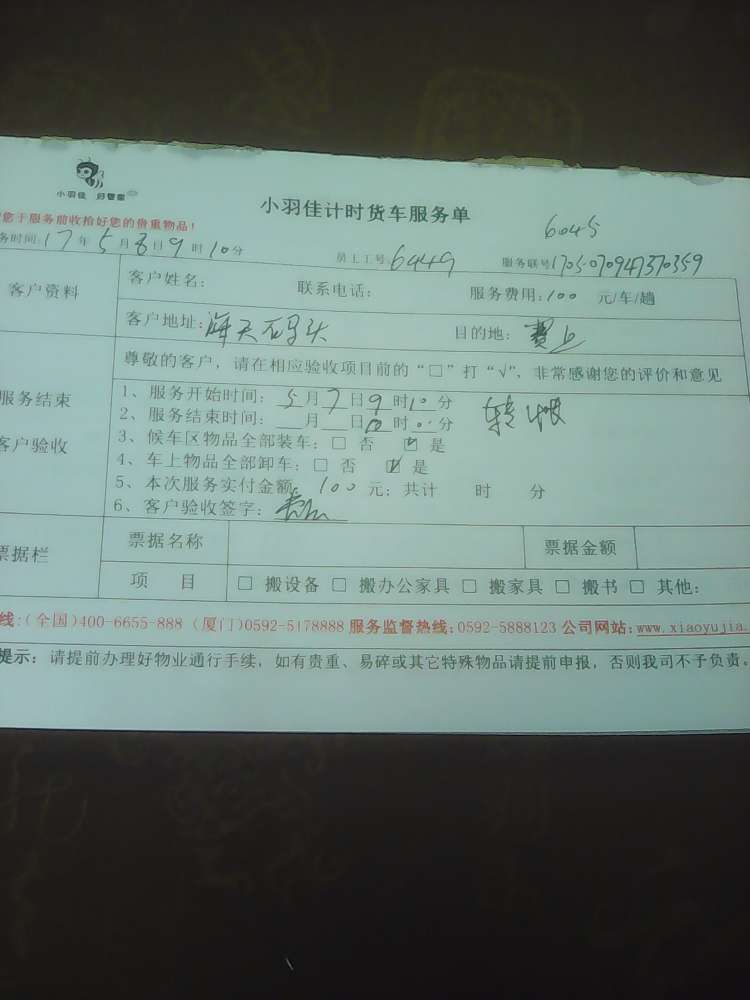 小羽佳 好管家
小羽佳计时货车服务单
6045
您于服务前收拾好您的贵重物品!
务时间:17年5月8日9时10分 员工工号:6449 服务联号1705-070947370359
客户资料
客户姓名: 联系电话: 服务费用:100 元/车/趟
客户地址:海天码头 目的地:
尊敬的客户，请在相应验收项目前的“□”打“√”，非常感谢您的评价和意见
服务结束
客户验收
1、服务开始时间: 5月7日9时10分 转账
2、服务结束时间: 月 日10时0分
3、候车区物品全部装车: □ 否 ☑ 是
4、车上物品全部卸车: □ 否 ☑ 是
5、本次服务实付金额: 100 元; 共计 时 分
6、客户验收签字:
票据栏
票据名称 票据金额
项 目 □ 搬设备 □ 搬办公家具 □ 搬家具 □ 搬书 □ 其他:
线:(全国)400-6655-888 (厦门)0592-5178888 服务监督热线:0592-5888123 公司网站:www.xiaoyujia.
提示: 请提前办理好物业通行手续，如有贵重、易碎或其它特殊物品请提前申报，否则我司不予负责。